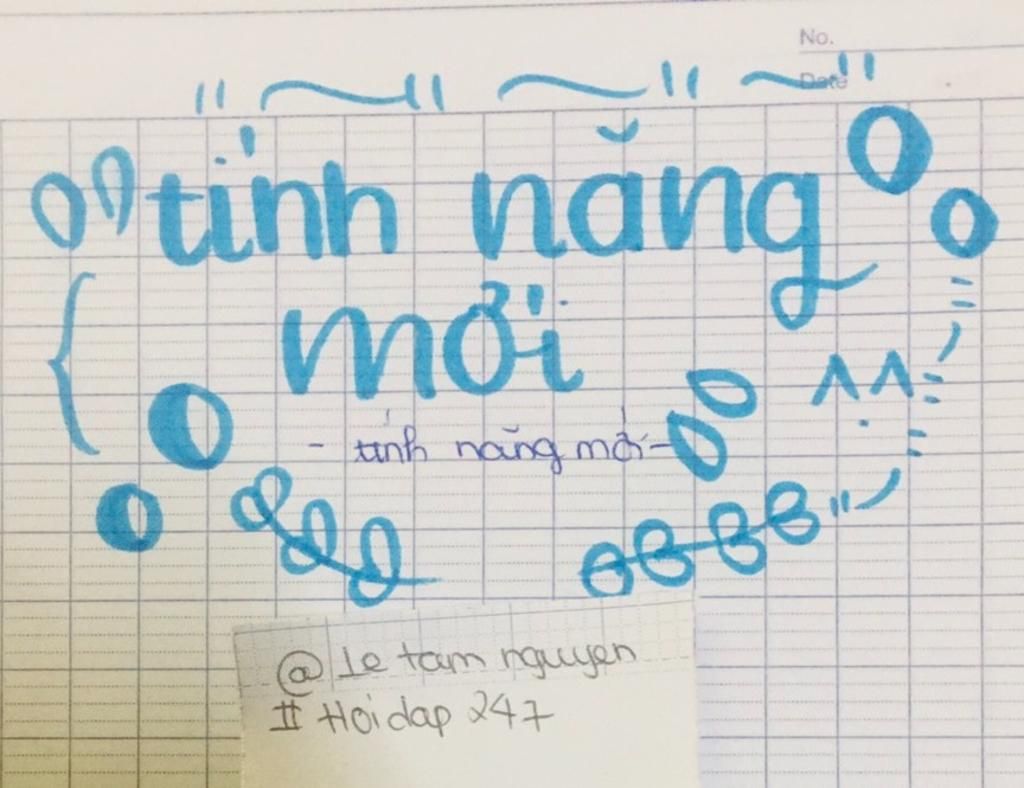 No.
Date
tính năng
mới
- tính năng mới -
@ Le tam nguyen
# Hoidap 247